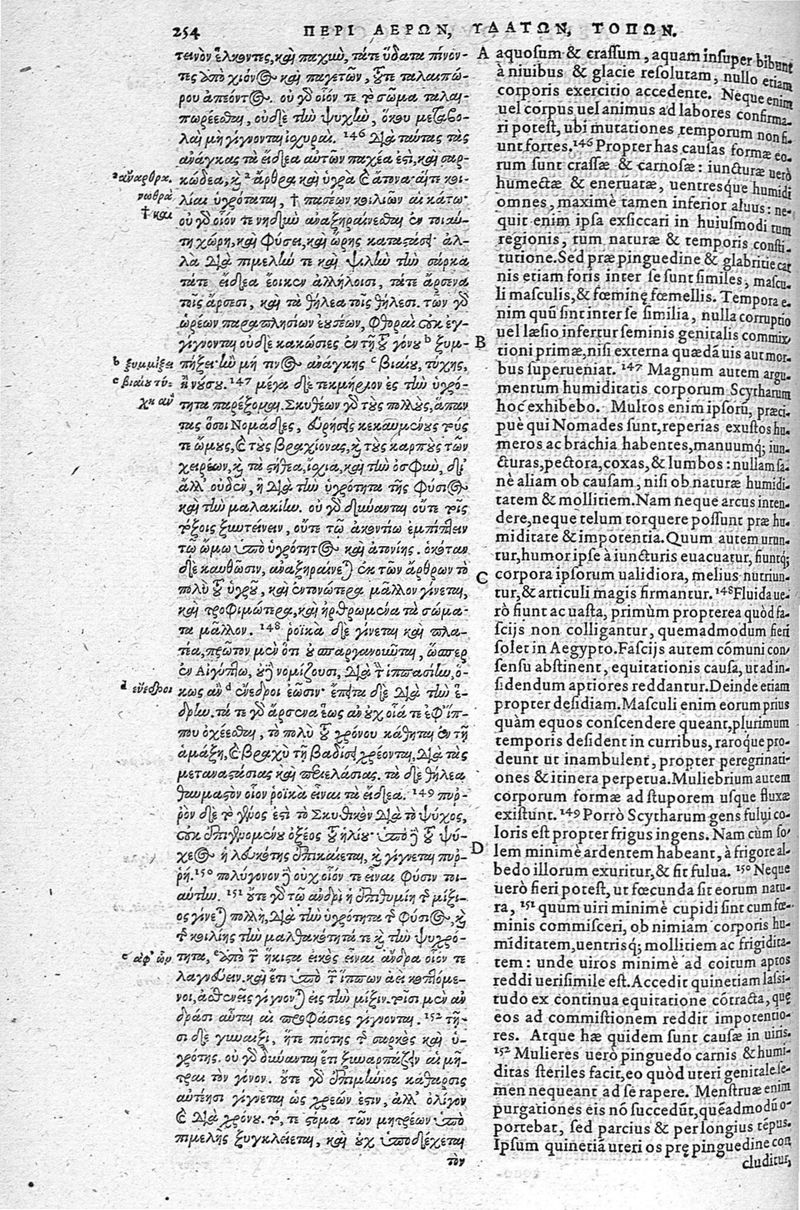 254 ΠΕΡΙ ΑΕΡΩΝ, ΥΔΑΤΩΝ, ΤΟΠΩΝ.
τεινὸν ἕλκοντες, καὶ παχὺν, τά τε ὕδατα πίνον-
τες ἀπὸ χιόνος καὶ παγετῶν, οὔτε ταλαιπώ-
ρου ἀπεόντος. οὐ γὰρ οἷόν τε τὸ σῶμα ταλαι-
πωρέεσθαι, οὐδὲ τὴν ψυχὴν, ὅκου μεταβο-
λαὶ μὴ γίγνονται ἰσχυραί. 146 διὰ ταύτας τὰς
ἀνάγκας τὰ εἴδεα αὐτῶν παχέα ἐστὶ, καὶ σαρ-
κώδεα, καὶ ª ἄρθρα καὶ ὑγρὰ καὶ ἄτονα· αἵ τε κοι-
λίαι ὑγρόταται, † πασέων κοιλιῶν αἱ κάτω·
οὐ γὰρ οἷόν τε νηδὺν ἀναξηραίνεσθαι ἐν τοιαύ-
τῃ χώρῃ, καὶ φύσει, καὶ ὥρης καταστάσει· ἀλ-
λὰ διὰ πιμελήν τε καὶ ψιλὴν τὴν σάρκα
τά τε εἴδεα ἔοικεν ἀλλήλοισι, τά τε ἄρσενα
τοῖς ἄρσεσι, καὶ τὰ θήλεα τοῖς θήλεσι. τῶν γὰρ
ὡρέων παραπλησίων ἐουσέων, φθοραὶ οὐκ ἐγ-
γίγνονται οὐδὲ κακώσιες ἐν τῇ τοῦ γόνου b ξυμ-
πήξει· ἢν μή τινος ἀνάγκης c βιαίου, τύχης,
ἢ νούσου. 147 μέγα δὲ τεκμήριον ἐς τὴν ὑγρό-
τητα παρέξομαι. Σκυθέων γὰρ τοὺς πολλοὺς, ἅπαν
τας ὅσοι Νομάδες, εὑρήσεις κεκαυμένους τούς
τε ὤμους, καὶ τοὺς βραχίονας, καὶ τοὺς καρποὺς τῶν
χειρέων, καὶ τὰ στήθεα, ἰσχία, καὶ τὴν ὀσφὺν, δι'
ἄλλ' οὐδὲν, ἢ διὰ τὴν ὑγρότητα τῆς φύσιος
καὶ τὴν μαλακίην. οὐ γὰρ δύνανται οὔτε τοῖς
τόξοις ξυντείνειν, οὔτε τῷ ἀκοντίῳ ἐμπίπτειν
τῷ ὤμῳ ὑπὸ ὑγρότητος καὶ ἀτονίης. ὁκόταν
δὲ καυθῶσιν, ἀναξηραίνεται ἐκ τῶν ἄρθρων τὸ
πολὺ τοῦ ὑγροῦ, καὶ ἐντονώτερα μᾶλλον γίνεται,
καὶ τροφιμώτερα, καὶ ἠρθρωμένα τὰ σώμα-
τα μᾶλλον. 148 ῥοϊκὰ δὲ γίνεται καὶ πλα-
τέα, πρῶτον μὲν ὅτι οὐ σπαργανοῦνται, ὥσπερ
ἐν Αἰγύπτῳ, οὐδὲ νομίζουσι, διὰ τὴν ἱππασίην, ὅ-
κως ἂν d εὔεδροι ἔωσιν· ἔπειτα δὲ διὰ τὴν ἕ-
δρην. τά τε γὰρ ἄρσενα ἕως ἂν οὐχ οἷά τε ἐφ' ἵπ-
που ὀχέεσθαι, τὸ πολὺ τοῦ χρόνου κάθηται ἐν τῇ
ἁμάξῃ, καὶ βραχὺ τῇ βαδίσει χρέονται, διὰ τὰς
μεταναστάσιας καὶ περιελάσιας. τὰ δὲ θήλεα
θαυμαστὸν οἷον ῥοϊκὰ εἶναι τὰ εἴδεα. 149 πυρ-
ρὸν δὲ τὸ γένος ἐστὶ τὸ Σκυθικὸν διὰ τὸ ψῦχος,
οὐκ ἐπιγενομένου ὀξέος τοῦ ἡλίου· ὑπὸ δὲ τοῦ ψύ-
χεος ἡ λευκότης ἐπικαίεται, καὶ γίγνεται πυρ-
ρή. 150 πολύγονον δὲ οὐχ οἷόν τε εἶναι φύσιν τοι-
αύτην. 151 οὔτε γὰρ τῷ ἀνδρὶ ἡ ἐπιθυμίη τῆς μίξι-
ος γίνεται πολλὴ, διὰ τὴν ὑγρότητα τῆς φύσιος, καὶ
τῆς κοιλίης τὴν μαλθακότητά τε καὶ τὴν ψυχρό-
τητα, e ἀπὸ τοῦ ἥκιστα εἰκὸς εἶναι ἄνδρα οἷόν τε
λαγνεύειν. καὶ ἔτι ὑπὸ τῶν ἵππων ἀεὶ κοπτόμε-
νοι, ἀσθενέες γίγνονται εἰς τὴν μίξιν. τοῖσι μὲν ἀν
δράσι αὗται αἱ προφάσιες γίγνονται. 152 τῇ-
σι δὲ γυναιξὶ, ἥ τε πιότης τῆς σαρκὸς καὶ ὑ-
γρότης. οὐ γὰρ δύνανται ἔτι ξυναρπάζειν αἱ μῆ-
τραι τὸν γόνον. οὔτε γὰρ ἐπιμήνιος κάθαρσις
αὐτέησι γίγνεται ὡς χρεών ἐστιν, ἀλλ' ὀλίγον
καὶ διὰ χρόνου. τό, τε στόμα τῶν μητρέων ὑπὸ
πιμελῆς ξυγκλείεται, καὶ οὐχ ὑποδέχεται
τὸν
ª ἄναρθρα.
νωθρὰ
† καὶ
b ξυμμίξει
c βιαίου τύ-
χη ἀν
d εὔεδροι
e ἀφ' ὧν
A aquosum & crassum, aquam insuper bibunt
à niuibus & glacie resolutam, nullo etiam
corporis exercitio accedente. Neque enim
uel corpus uel animus ad labores confirma-
ri potest, ubi mutationes temporum non fi-
unt fortes. 146 Propter has causas formæ eo-
rum sunt crassæ & carnosæ: iuncturæ uerò
humectæ & eneruatæ, uentresque humidi
omnes, maximè tamen inferior aluus: ne-
quit enim ipsa exsiccari in huiusmodi tum
regionis, tum naturæ & temporis consti-
tutione. Sed præ pinguedine & glabritie car
nis etiam foris inter se sunt similes, mascu-
li masculis, & fœminę fœmellis. Tempora e-
nim quũ sint inter se similia, nulla corruptio
uel læsio infertur seminis genitalis commix-
B tioni primæ, nisi externa quædã uis aut mor-
bus superueniat. 147 Magnum autem argu-
mentum humiditatis corporum Scytharum
hoc exhibebo. Multos enim ipsorũ, præci-
puè qui Nomades sunt, reperias exustos hu-
meros ac brachia habentes, manuumq; iun-
cturas, pectora, coxas, & lumbos: nullam sa-
nè aliam ob causam, nisi ob naturæ humidi-
tatem & mollitiem. Nam neque arcus inten-
dere, neque telum torquere possunt præ hu-
miditate & impotentia. Quum autem urun-
tur, humor ipse à iuncturis euacuatur, fiuntq;
C corpora ipsorum ualidiora, melius nutriun-
tur, & articuli magis firmantur. 148 Fluida ue-
rò fiunt ac uasta, primùm propterea quòd fa-
scijs non colligantur, quemadmodum fieri
solet in Aegypto. Fascijs autem cõmuni con-
sensu abstinent, equitationis causa, ut ad in-
sidendum aptiores reddantur. Deinde etiam
propter desidiam. Masculi enim eorum prius
quàm equos conscendere queant, plurimum
temporis desident in curribus, raroque pro-
deunt ut inambulent, propter peregrinati-
ones & itinera perpetua. Muliebrium autem
corporum formæ ad stuporem usque fluxæ
existunt. 149 Porrò Scytharum gens fului co-
loris est propter frigus ingens. Nam cùm so-
D lem minimè ardentem habeant, à frigore al-
bedo illorum exuritur, & fit fulua. 150 Neque
uerò fieri potest, ut fœcunda sit eorum natu-
ra, 151 quum uiri minimè cupidi sint cum fœ-
minis commisceri, ob nimiam corporis hu-
miditatem, uentrisq; mollitiem ac frigidita-
tem: unde uiros minimè ad coitum aptos
reddi uerisimile est. Accedit quinetiam lassi-
tudo ex continua equitatione cõtracta, quę
eos ad commistionem reddit impotentio-
res. Atque hæ quidem sunt causæ in uiris.
152 Mulieres uerò pinguedo carnis & humi-
ditas steriles facit, eo quòd uteri genitale se-
men nequeant ad se rapere. Menstruæ enim
purgationes eis nõ succedũt, quẽadmodũ o-
portebat, sed parcius & per longius tẽpus.
Ipsum quinetiã uteri os prę pinguedine con
cluditur,